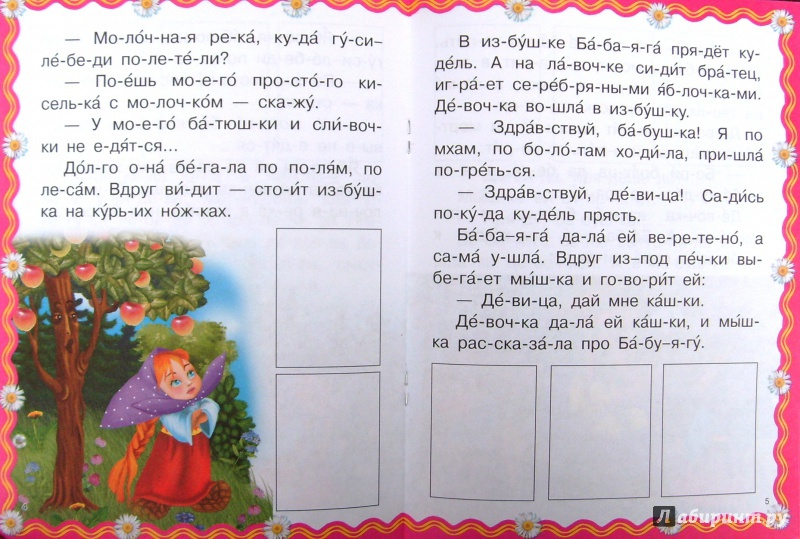 — Мо-ло́ч-на-я ре-ка́, ку-да́ гу́-си-
ле́-бе-ди по-ле-те́-ли?
— По-е́шь мо-е-го́ про-сто́-го ки-
сель-ка́ с мо-лоч-ко́м — ска-жу́.
— У мо-е-го́ ба́-тюш-ки и сли́-воч-
ки не е-дя́т-ся...
До́л-го о-на́ бе́-га-ла по по-ля́м, по
ле-са́м. Вдруг ви́-дит — сто-и́т из-бу́ш-
ка на ку́рь-их но́ж-ках.
В из-бу́ш-ке Ба́-ба–я-га́ пря-дёт ку-
де́ль. А на ла́-воч-ке си-ди́т бра́-тец,
иг-ра́-ет се-ре́б-ря-ны-ми я́б-лоч-ка-ми.
Де́-воч-ка во-шла́ в из-бу́ш-ку.
— Здра́в-ствуй, ба́-буш-ка! Я по
мхам, по бо-ло́-там хо-ди́-ла, при-шла́
по-гре́ть-ся.
— Здра́в-ствуй, де́-ви-ца! Са-ди́сь
по-ку́-да ку-де́ль прясть.
Ба́-ба–я-га́ да-ла́ ей ве-ре-те-но́, а
са-ма́ у-шла́. Вдруг из–под пе́ч-ки вы-
бе-га́-ет мы́ш-ка и го-во-ри́т ей:
— Де́-ви-ца, дай мне ка́ш-ки.
Де́-воч-ка да-ла́ ей ка́ш-ки, и мы́ш-
ка рас-ска-за́-ла про Ба́-бу–я-гу́.
5
Лабиринт.ру